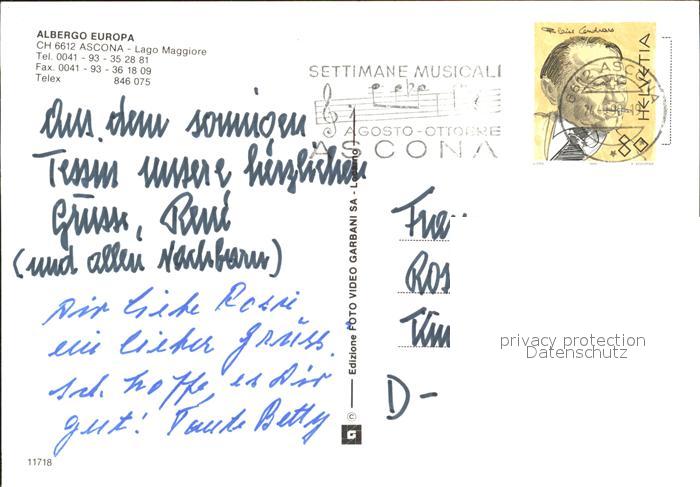 ALBERGO EUROPA
CH 6612 ASCONA - Lago Maggiore
Tel. 0041 - 93 - 35 28 81
Fax. 0041 - 93 - 36 18 09
Telex 846 075
SETTIMANE MUSICALI
AGOSTO - OTTOBRE
ASCONA
6612 ASCONA
Blaise Cendrars
HELVETIA
80
Aus dem sonnigen
Tessin unsere herzlichen
Grüsse, René
(und allen Nachbarn)
Dir liebe Rossi
ein lieber Grüss.
Ich hoffe, es Dir
gut! Tante Betty
Edizione FOTO VIDEO GARBANI SA - Losone
©
G
Fra
Ros
D-
privacy protection
Datenschutz
11718